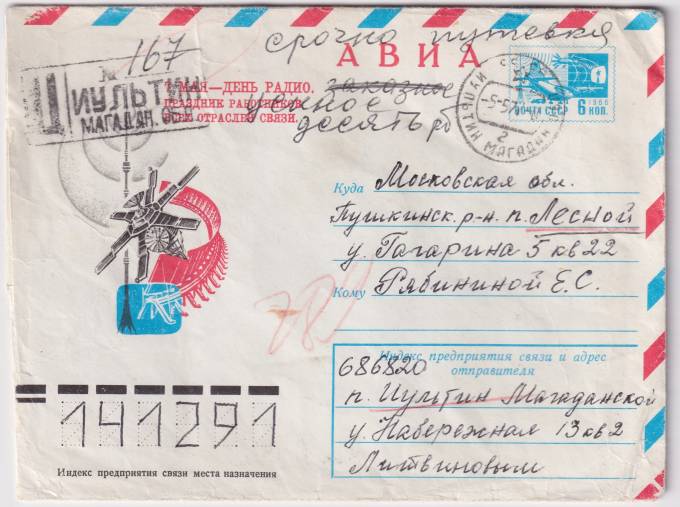 срочно путевка
АВИА
№ 167
Ц ИУЛЬТИН
МАГАДАН. ОБЛ.
7 МАЯ—ДЕНЬ РАДИО.
ПРАЗДНИК РАБОТНИКОВ
ВСЕХ ОТРАСЛЕЙ СВЯЗИ.
заказное
ценное
десять р
ПОЧТА СССР
1966
6 КОП.
Куда Московская обл.
Пушкинск. р-н. п. Лесной
у. Гагарина 5 кв 22
Кому Рябининой Е. С.
Индекс предприятия связи и адрес
отправителя
686820
п. Иультин Магаданской
у. Набережная 13 кв 2
Литвиновым
141291
Индекс предприятия связи места назначения